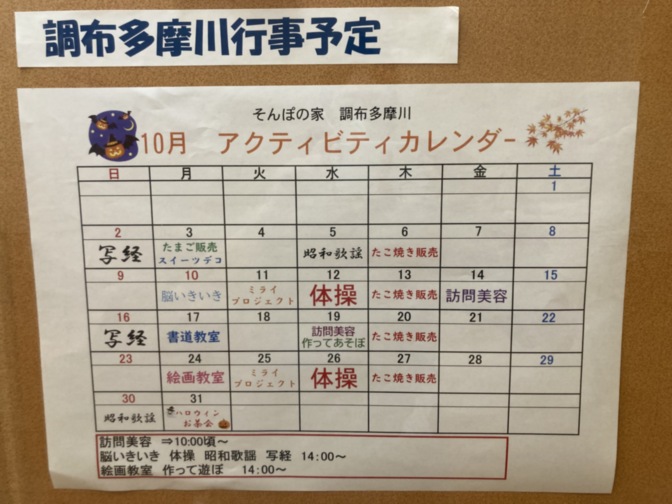 調布多摩川行事予定
そんぽの家 調布多摩川
10月 アクティビティカレンダー
日 月 火 水 木 金 土
1
2 3 4 5 6 7 8
写経 たまご販売 昭和歌謡 たこ焼き販売
スイーツデコ
9 10 11 12 13 14 15
脳いきいき ミライ 体操 たこ焼き販売 訪問美容
プロジェクト
16 17 18 19 20 21 22
写経 書道教室 訪問美容 たこ焼き販売
作ってあそぼ
23 24 25 26 27 28 29
絵画教室 ミライ 体操 たこ焼き販売
プロジェクト
30 31
昭和歌謡 ハロウィン
お茶会
訪問美容 ⇒10:00頃~
脳いきいき 体操 昭和歌謡 写経 14:00~
絵画教室 作って遊ぼ 14:00~